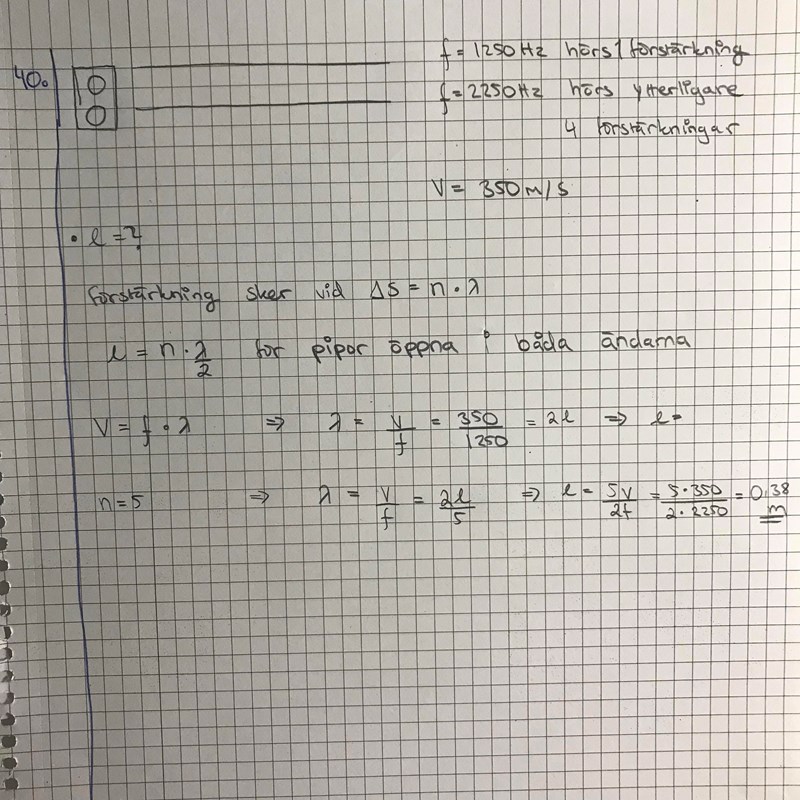 40.
f = 1250 Hz hörs 1 förstärkning
f = 2250 Hz hörs ytterligare
4 förstärkningar
V = 350 m/s
• l = ?
Förstärkning sker vid Δs = n · λ
l = n · λ/2 för pipor öppna i båda ändarna
V = f · λ ⇒ λ = V/f = 350/1250 = 2l ⇒ l =
n = 5 ⇒ λ = V/f = 2l/5 ⇒ l = 5V/2f = 5·350/2·2250 = 0,38 m